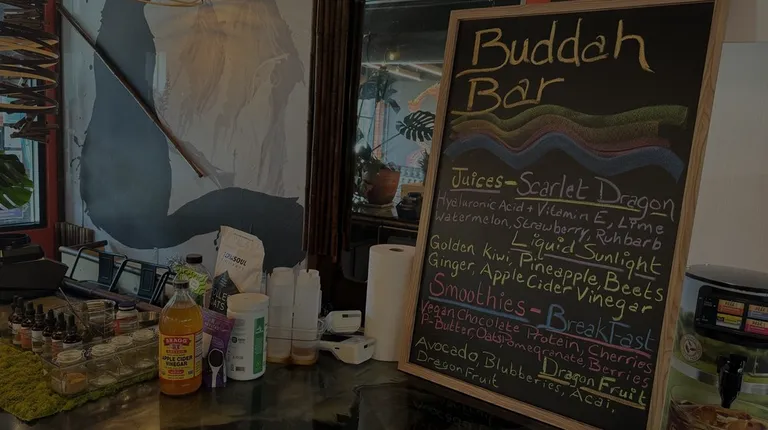 Buddah
Bar
Juices - Scarlet Dragon
Hyaluronic Acid + Vitamin E, Lime
Watermelon, Strawberry, Ruhbarb
Liquid Sunlight
Golden Kiwi, Pineapple, Beets
Ginger, Apple Cider Vinegar
Smoothies - BreakFast
Vegan Chocolate Protein, Cherries
P-Butter, Oats, Pomegranate Berries
Dragon Fruit
Avocado, Blubberies, Acai,
Dragon Fruit
BRAGG
APPLE CIDER
VINEGAR